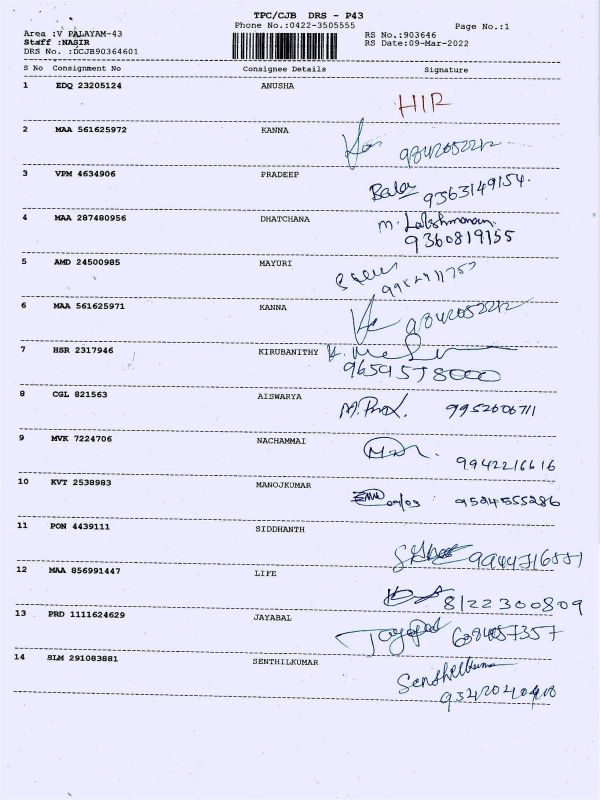 TPC/CJB DRS - P43
Phone No.:0422-3505555
Page No.:1
Area :V PALAYAM-43
Staff :NASIR
DRS No. :DCJB90364601
RS No.:903646
RS Date:09-Mar-2022
S No Consignment No Consignee Details Signature
1 EDQ 23205124 ANUSHA
2 MAA 561625972 KANNA 9842052212
3 VPM 4634906 PRADEEP Bala 9363149154.
4 MAA 287480956 DHATCHANA M. Lakshmanan.
9360819155
5 AMD 24500985 MAYURI
6 MAA 561625971 KANNA 9842052212
7 HSR 2317946 KIRUBANITHY
9659578000
8 CGL 821563 AISWARYA 9952606711
9 MVK 7224706 NACHAMMAI
9942216616
10 KVT 2538983 MANOJKUMAR 09/03 9524555286
11 PON 4439111 SIDDHANTH
12 MAA 856991447 LIFE 8122300809
13 PRD 1111624629 JAYABAL
14 SLM 291083881 SENTHILKUMAR Senthilkumar